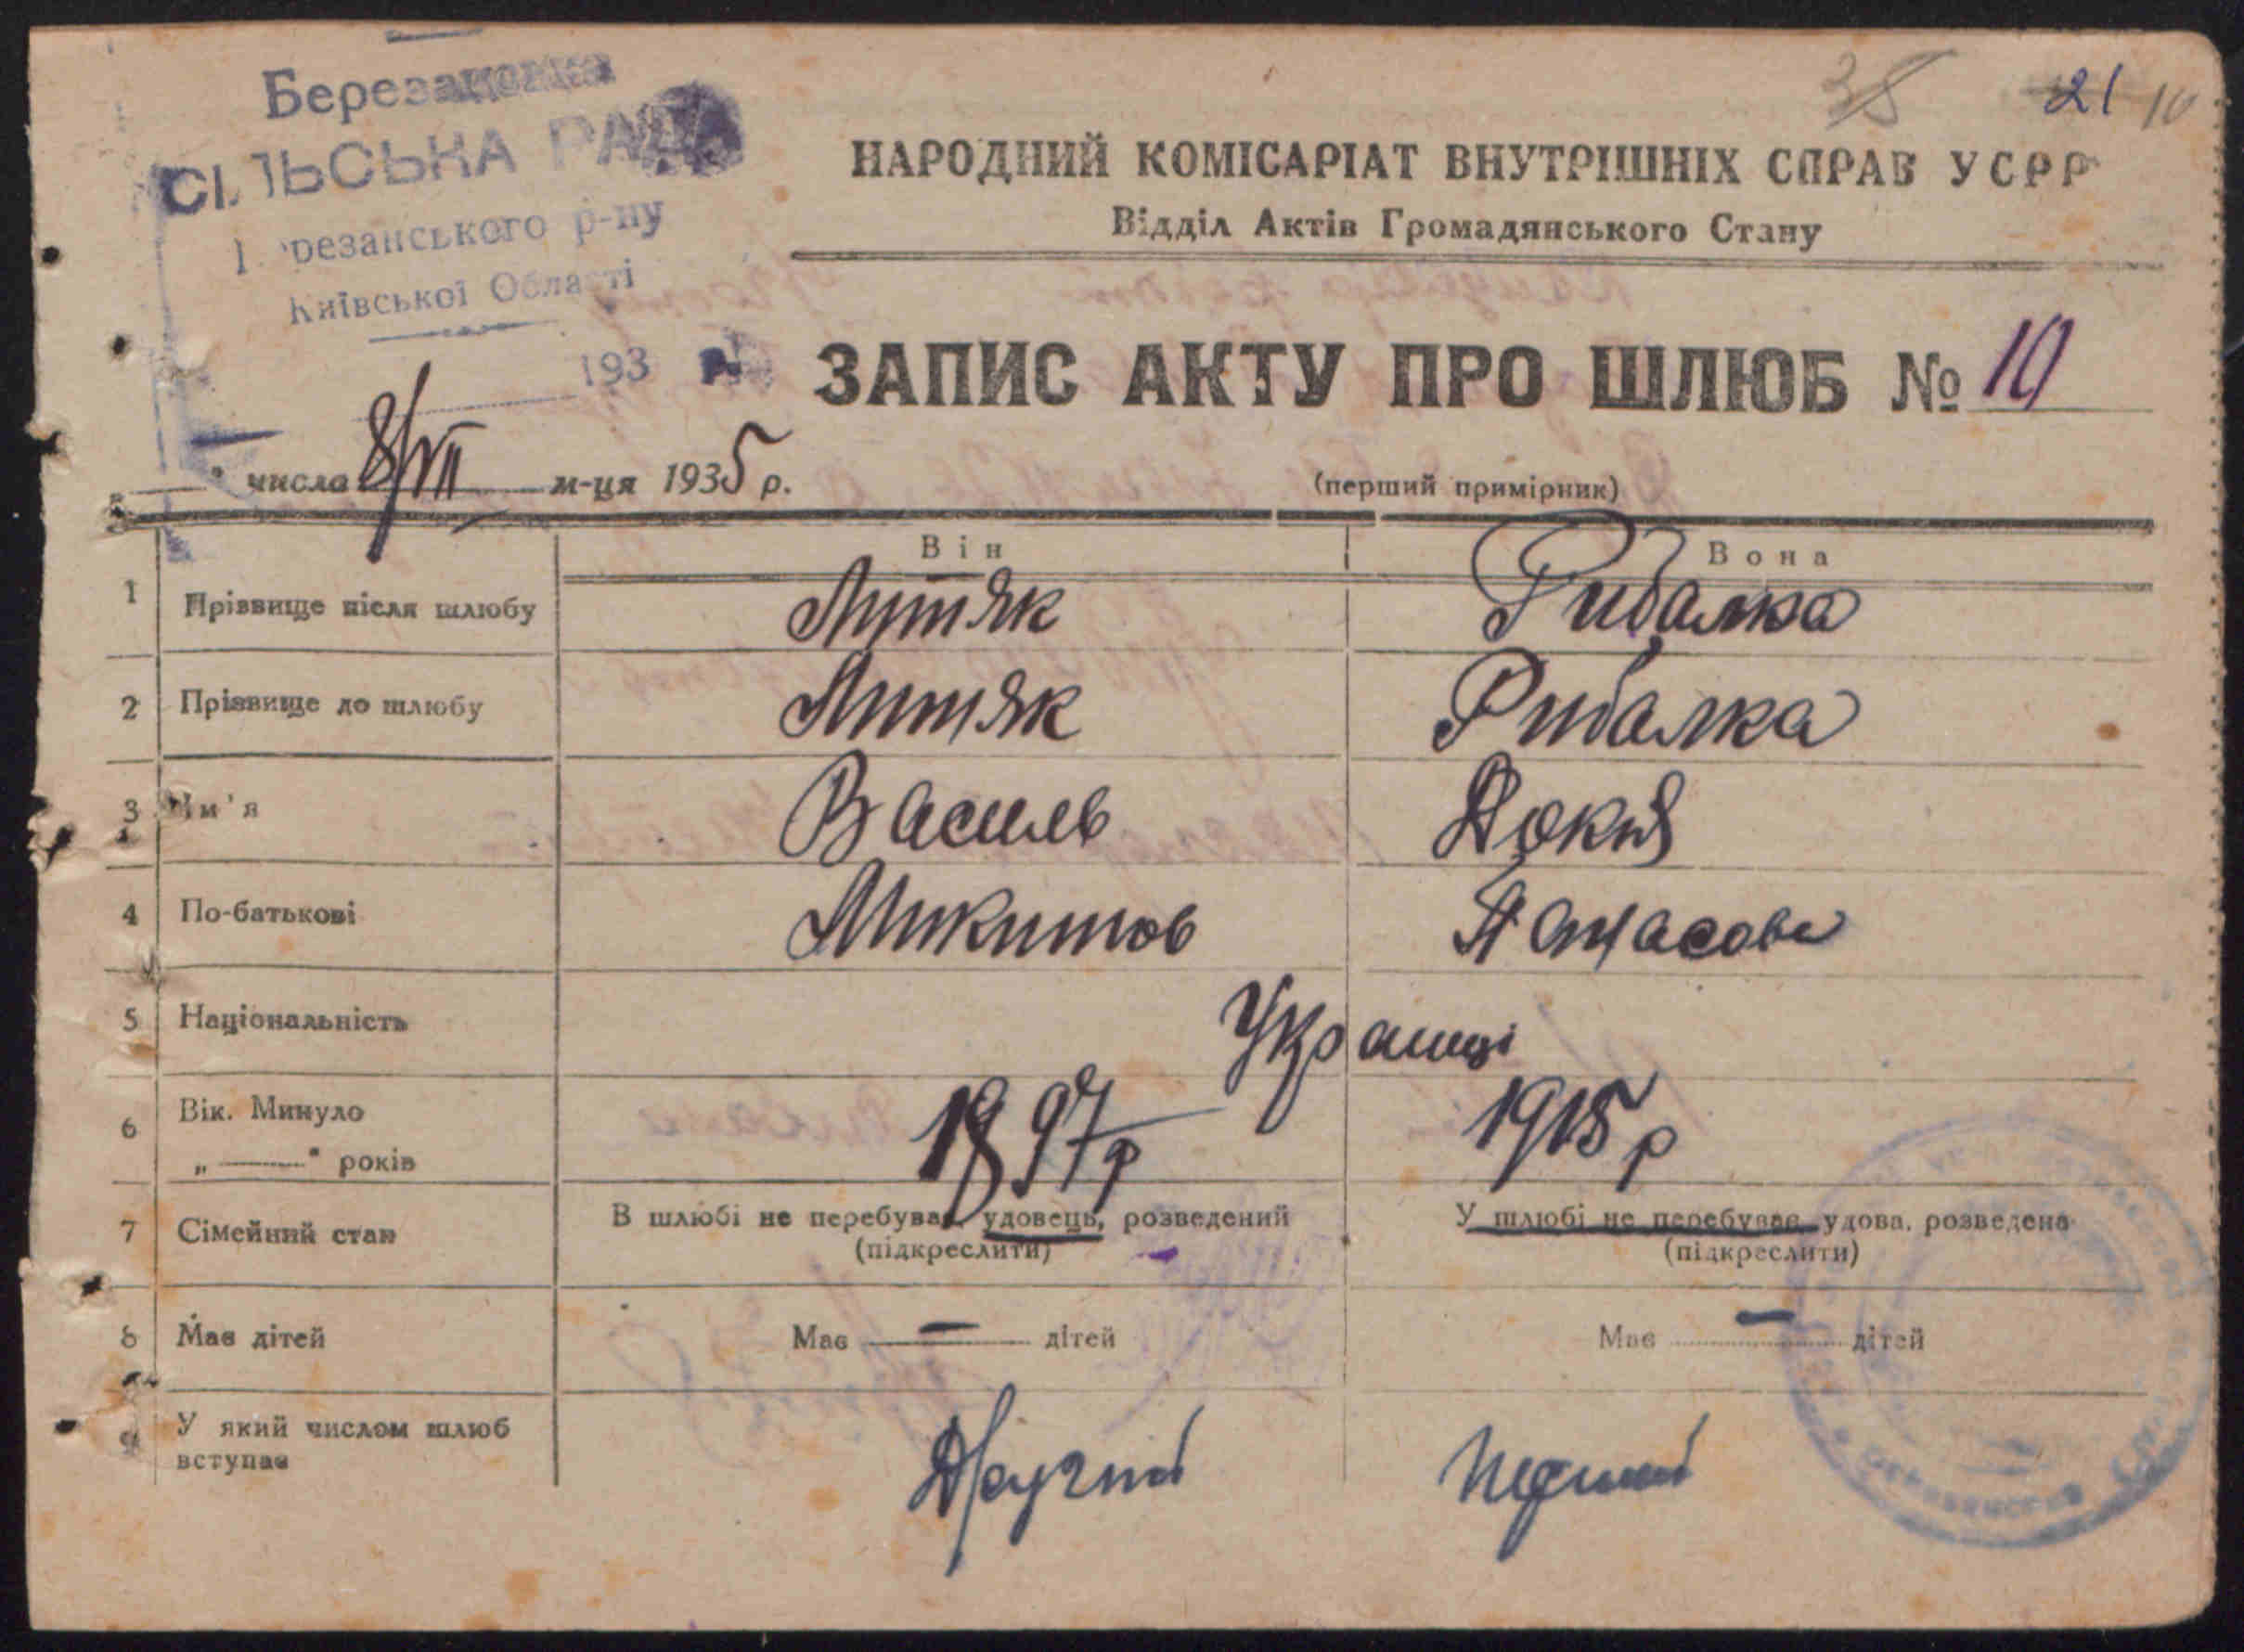 38 21 10
СІЛЬСЬКА РАДА
Березанського р-ну
Київської Області
193
НАРОДНИЙ КОМІСАРІАТ ВНУТРІШНІХ СПРАВ УСРР
Відділ Актів Громадянського Стану
ЗАПИС АКТУ ПРО ШЛЮБ № 10
" числа 8/VII м-ця 1935 р.
(перший примірник)
Він Вона
1 Прізвище після шлюбу Литяк Рибалка
2 Прізвище до шлюбу Литяк Рибалка
3 Ім'я Василь Докія
4 По-батькові Микитов
5 Національність Українці
6 Вік. Минуло 1897 р 1915 р
„ — " років
7 Сімейний стан В шлюбі не перебував, удовець, розведений У шлюбі не перебував, удова, розведена
(підкреслити) (підкреслити)
8 Має дітей Має — дітей Має — дітей
9 У який числом шлюб Другий перший
вступає